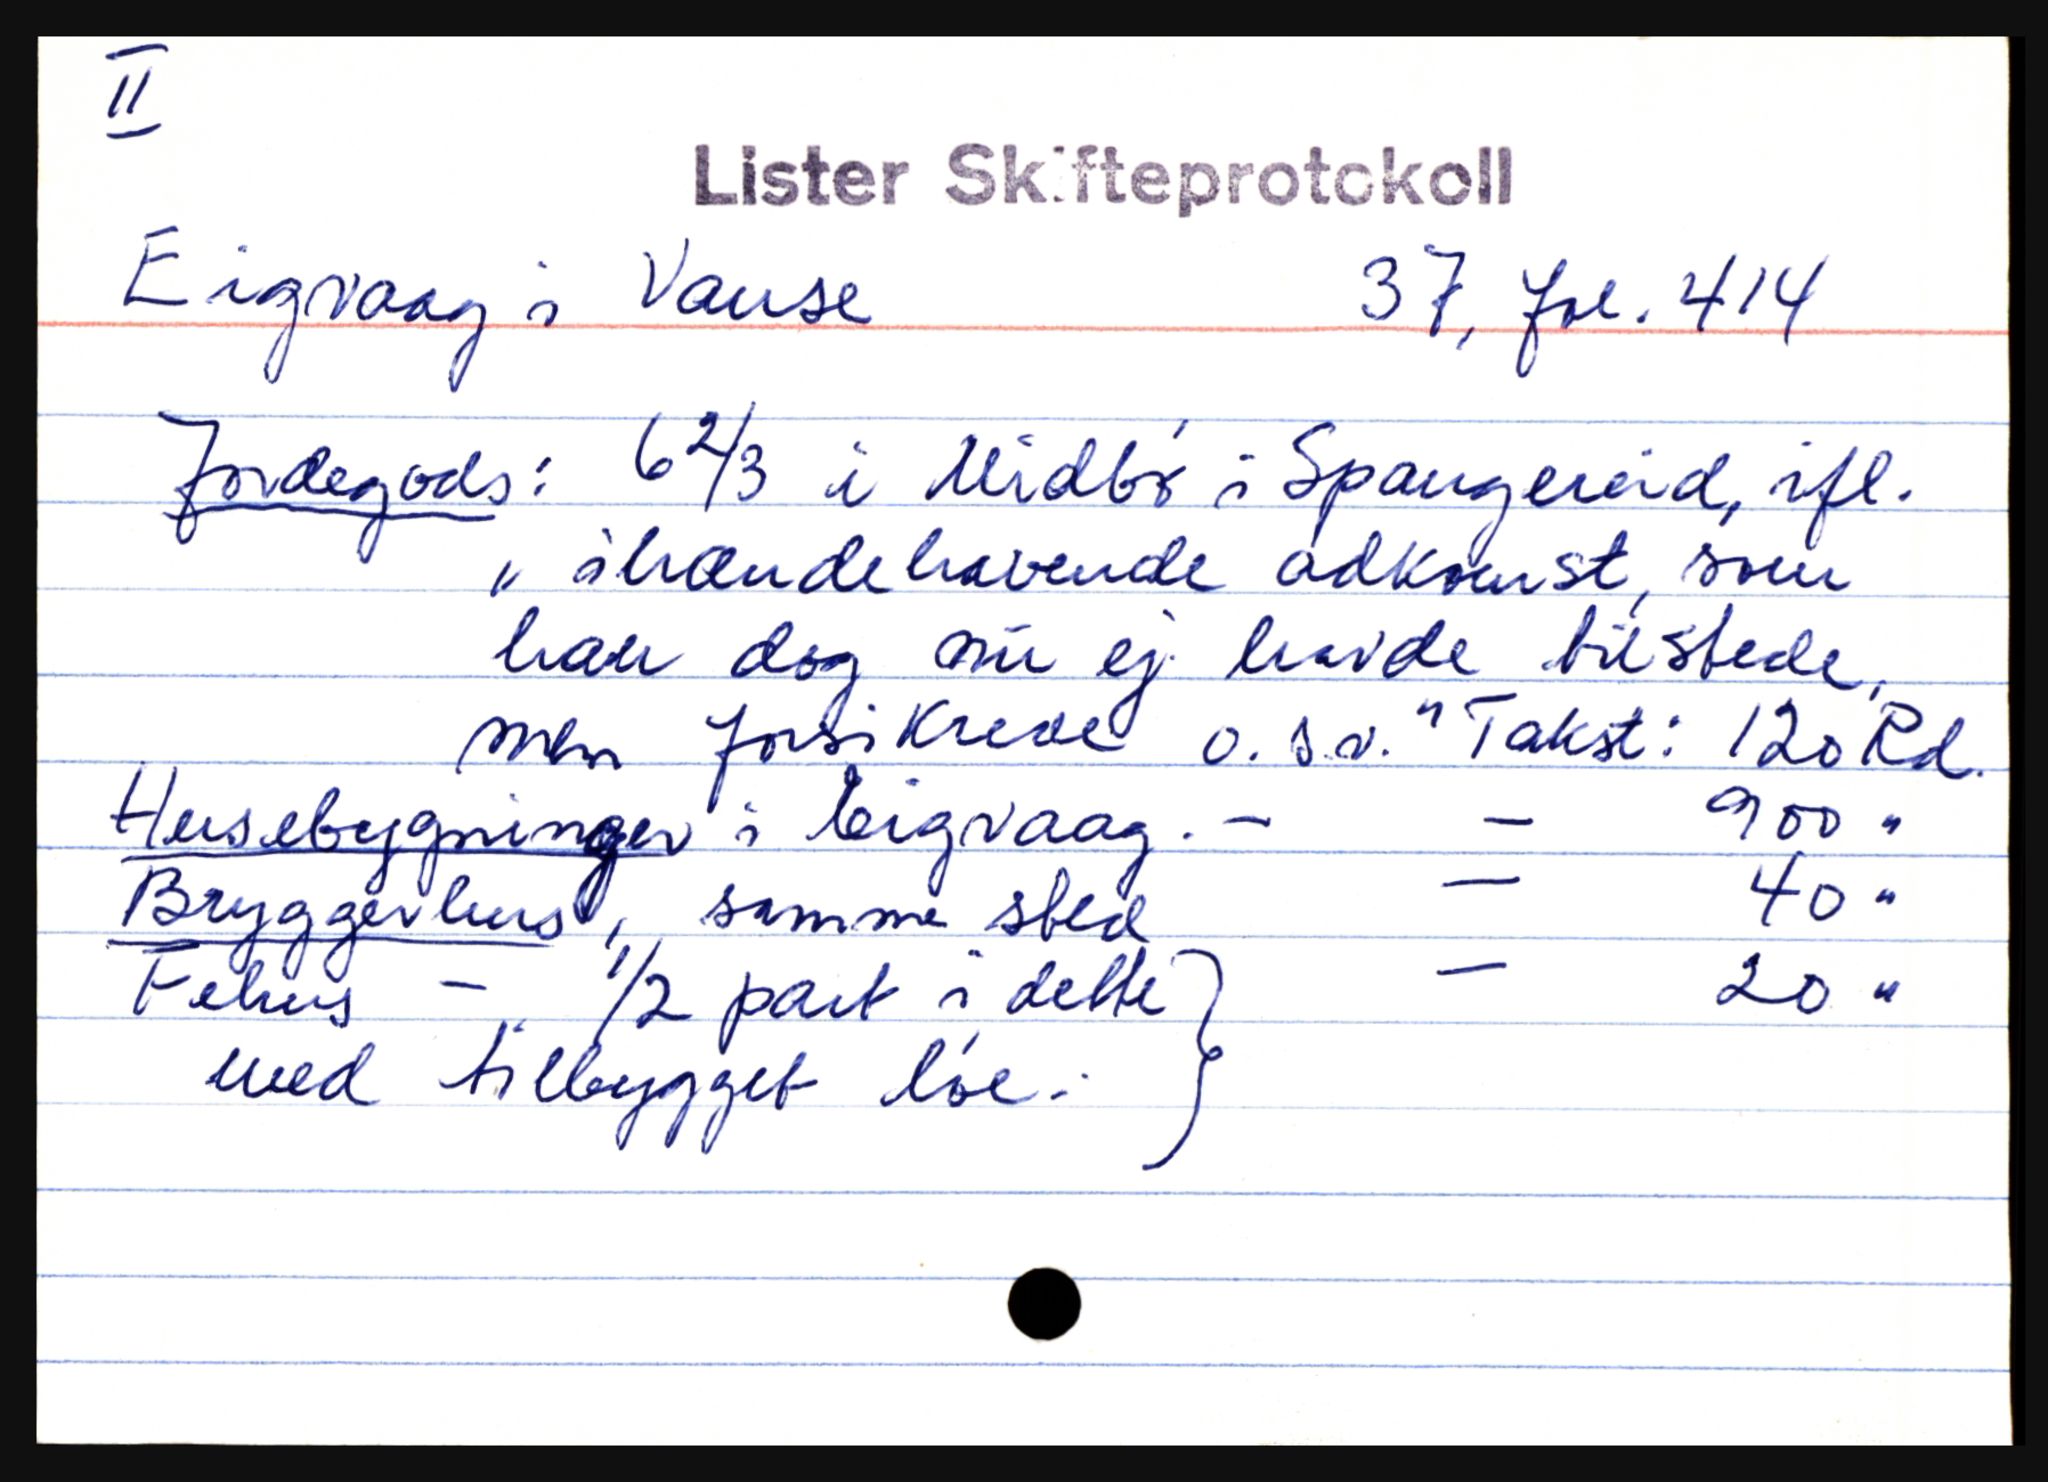 II
Lister Skifteprotokoll
Eigvaag i Vanse 37, fol. 414
Jordegods: 6 2/3 i Midbø i Spangereid, ifl.
" ihændehavende adkomst, som
han dog nu ej havde tilstede,
men forsikrede o.s.v." Takst: 120 Rd.
Husebygninger i Eigvaag. - - 900 "
Bryggerhus, samme sted - 40 "
Fehus - 1/2 part i dette } - 20 "
med tilbygget løe.